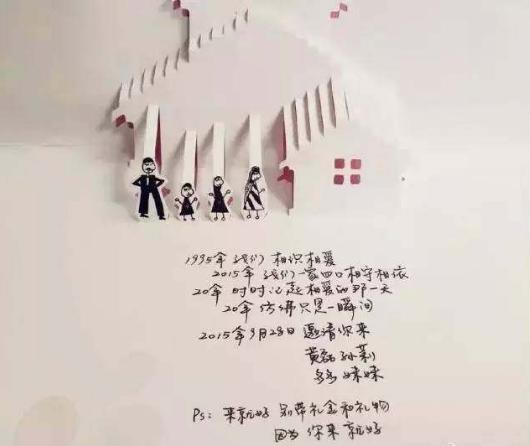 1995年 我们 相识相爱
2015年 我们一家四口相守相依
20年 时时记起相爱的那一天
20年 仿佛只是一瞬间
2015年9月28日 邀请你来
黄磊 孙莉
多多 妹妹
Ps: 来就好 别带礼金和礼物
因为 你来就好